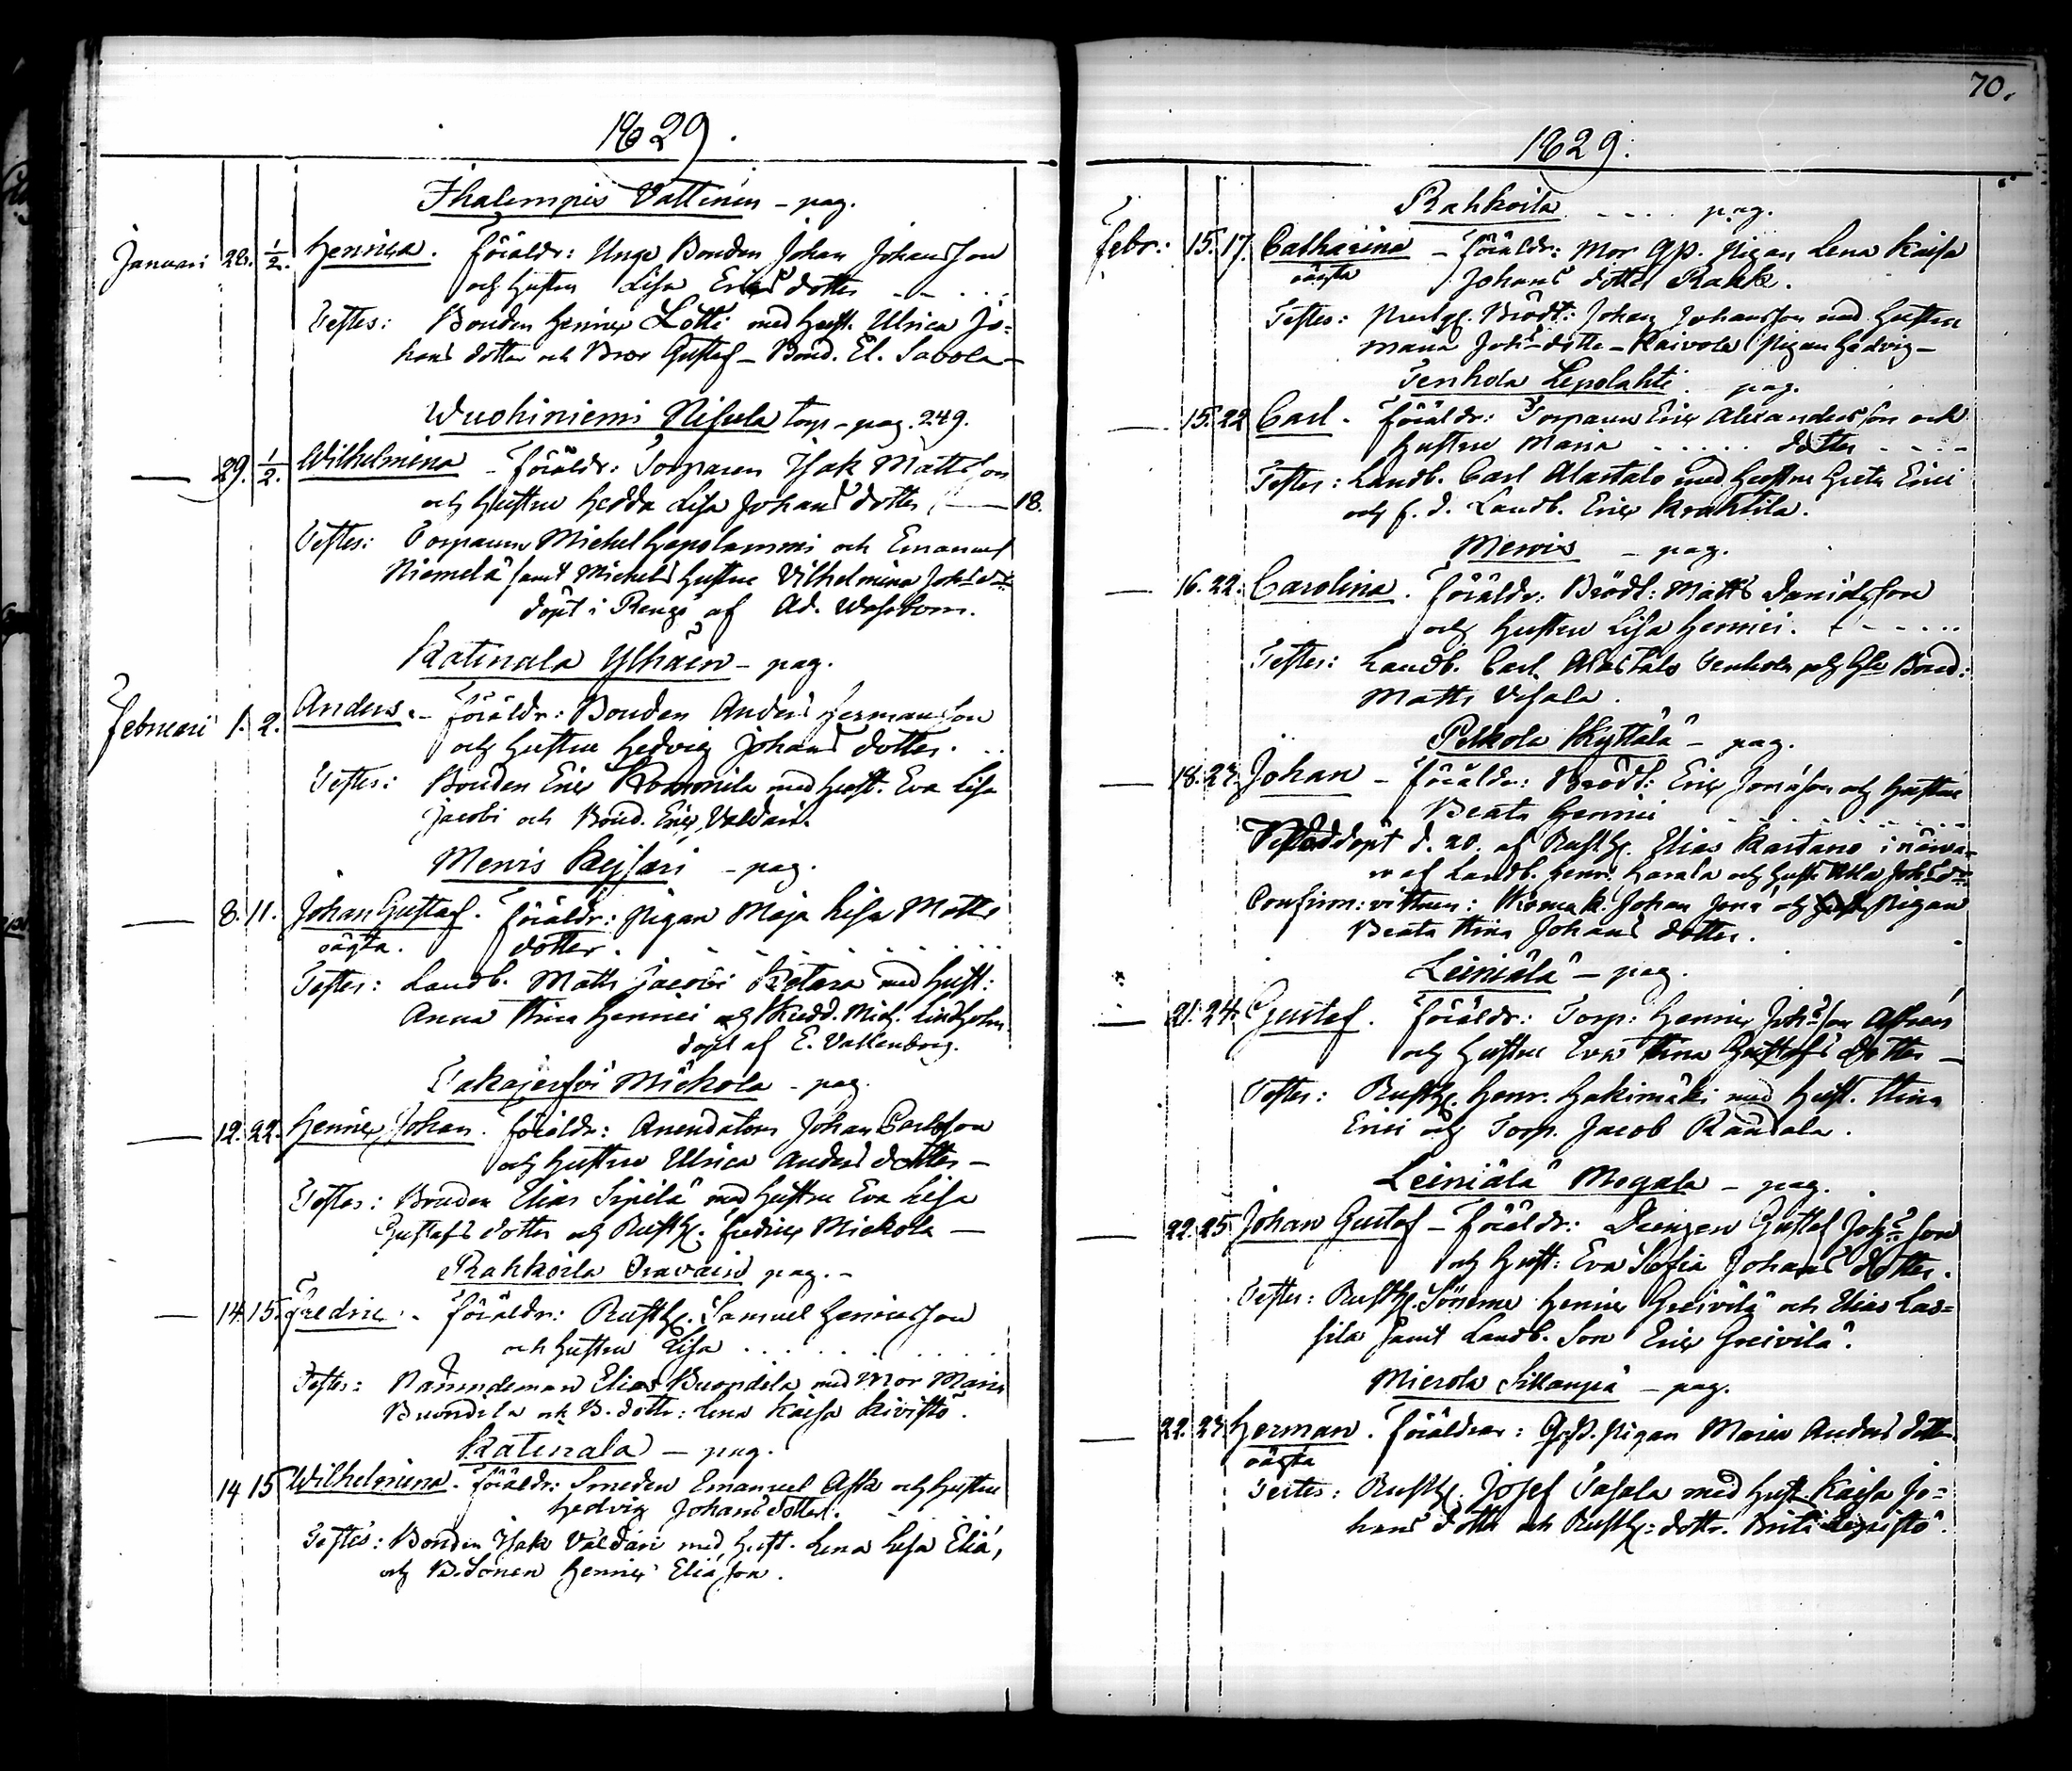 1829.
Ihalempis Vattinen - pag.
Januari 22. 1/2. Henrica. Föräldr: Unge Bonden Johan Johansson
och Hustru Lisa Erics dotter
Testes: Bonden Henric Lotti med Hust. Ulrica Jo=
hans dotter och Bror Gustaf - Bond. El. Savola -
Wuohiniemi Nisula torp - pag. 249.
29. 1/2. Wilhelmina - Föräldr: Torparen Isak Mattsson
och Hustru Hedda Lisa Johans dotter 18.
Testes: Torparen Michel Hapolammi och Emanuel
Niemelä samt Michels Hustru Vilhelmina Johs dr
döpt i Rengo af Ad. Wassbom.
Katinala Ylhäin - pag.
Februari 1. 2. Anders. - Föräldr: Bonden Anders Hermansson
och Hustru Hedvig Johans dotter.
Testes: Bonden Eric med Hust. Eva Lisa
Jacobi och Bond. Eric Valdari.
Mervis Keijsari - pag.
8. 11. Johan Gustaf. Föräldr: Pigan Maja Lisa Matts
oägta. dotter.
Testes: Landb. Matts Jacobi Ketara med Hust:
Anna Stina Henrici och Skredd. Mich. Lindholm.
döpt af E. Vallenborg.
Takajerfvi Mickola - pag.
12. 22. Henric Johan. Föräldr: Arendatorn Johan Carlsson
och Hustru Ulrica Anders dotter -
Testes: Bonden Elias Sipilä med Hustru Eva Lisa
Gustafs dotter och Rusth. Fredric Mickola -
Rahkoila Oravain pag. -
14. 15. Fredric. - Föräldr: Rusth. Samuel Henricsson
och Hustru Lisa
Testes: Nämndeman Elias Buondila med Mor Maria
Buondila och B. dottr: Lena Kaisa Kivistö.
Katinala - pag.
14 15 Wilhelmina. Föräldr: Smeden Emanuel Ask och Hustru
Hedvig Johans dotter.
Testes: Bonden Isak Valdari med Hust. Lena Lisa Eliä,
och B. Sonen Henric Eliason.
70.
1829.
Rahkoila pag.
Febr: 15. 17. Catharina - Föräldr: Mor Pigan Lena Kaisa
oägta Johans dotter Raak.
Testes: Brödt: Johan Johansson med Hustru
Maria Johs dotter - Kaivola Pigan Hedvig -
Tenhola Lepolahti pag.
15. 22 Carl. Föräldr: Torparen Eric Alexandersson och
Hustru Maria dotter
Testes: Landb. Carl Alastalo med Hustru Greta Erici
och f. d. Landb. Eric Krahtila.
Mervis - pag.
16. 22. Carolina. Föräldr: Brödt: Matts Danielsson
och Hustru Lisa Henrici.
Testes: Landb. Carl Alastalo Tenhola och Bond:
Matts Vesala.
Pelkola Kyttälä - pag.
18. 27. Johan - Föräldr: Brödt: Eric Jonasson och Hustru
Beata Henrici
döpt d. 20. af Rusth. Elias Kartano i närva=
ro af Landb. Henr. Harala och Hust. Ulla Johs dr
Confirm: vittnen: Kusk: Johan Jona och Pigan
Beata Stina Johans dotter.
Leiniälä - pag.
21. 24. Gustaf. Föräldr: Torp: Henric Johsson Alfrén
och Hustru Eva Stina Gustafs dotter -
Testes: Rusth. Henr. Hakimäki med Hust. Stina
Erici och Torp. Jacob Randala.
Leiniälä Mogala - pag.
22. 25. Johan Gustaf - Föräldr: Drengen Gustaf Johsson
och Hust: Eva Sofia Johans dotter.
Testes: Rusth. Sönerne Henric Greivilä och Elias Las=
sila samt Landb. Son Eric Greivilä.
Mierola Sillanpä - pag.
22. 27. Herman. Föräldrar: Pigan Maria Anders dotter
oägta
Testes: Rusth. Josef Tasala med Hust. Kaisa Jo=
hans dotter och Rusth: dottr. Brita Lepistö.